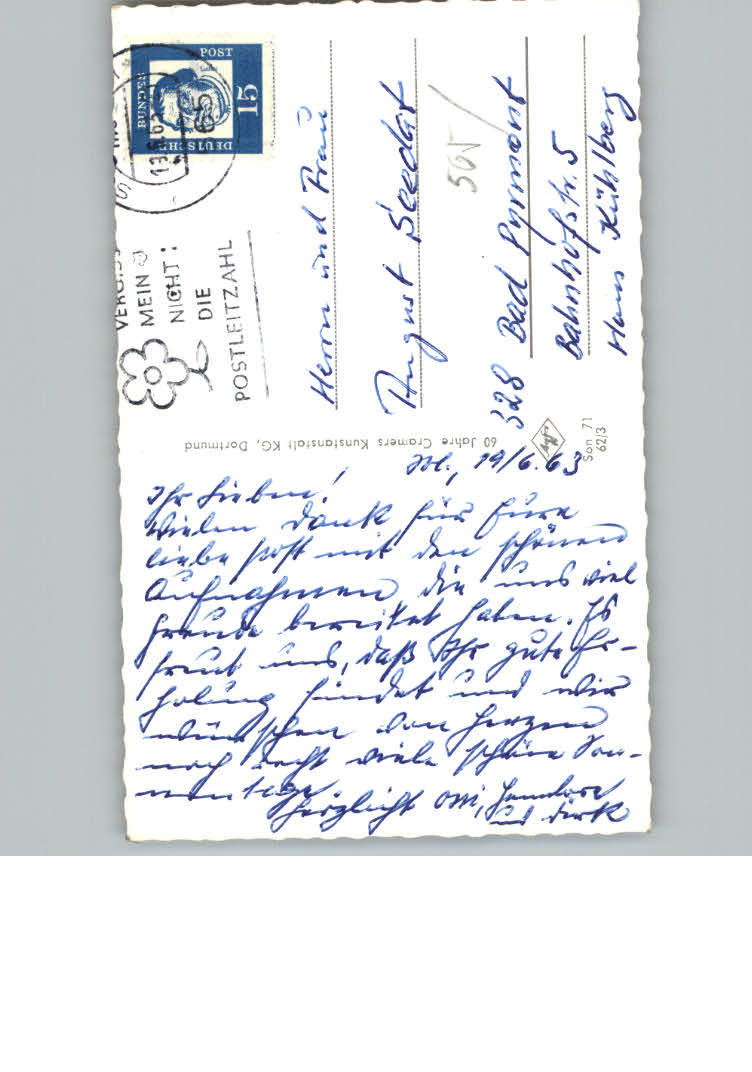 DEUTSCHE
BUNDES
POST
15
13.6.63
VERGISS
MEIN
NICHT:
DIE
POSTLEITZAHL
Herrn und Frau
August Seedat
565
328 Bad Pyrmont
Bahnhofstr. 5
Haus Kühlberg
60 Jahre Cramers Kunstanstalt KG, Dortmund
Agfa
Son 71
62/3
19/6.63
Ihr Lieben!
Vielen Dank für Eure
liebe Post mit den schönen
Aufnahmen die uns viel
Freude bereitet haben. Es
freut uns, daß Ihr gute Er-
holung findet und wir
wünschen von Herzen
noch recht viele schöne Son-
nentage.
Herzlichst Omi, Hannelore
und Dirk